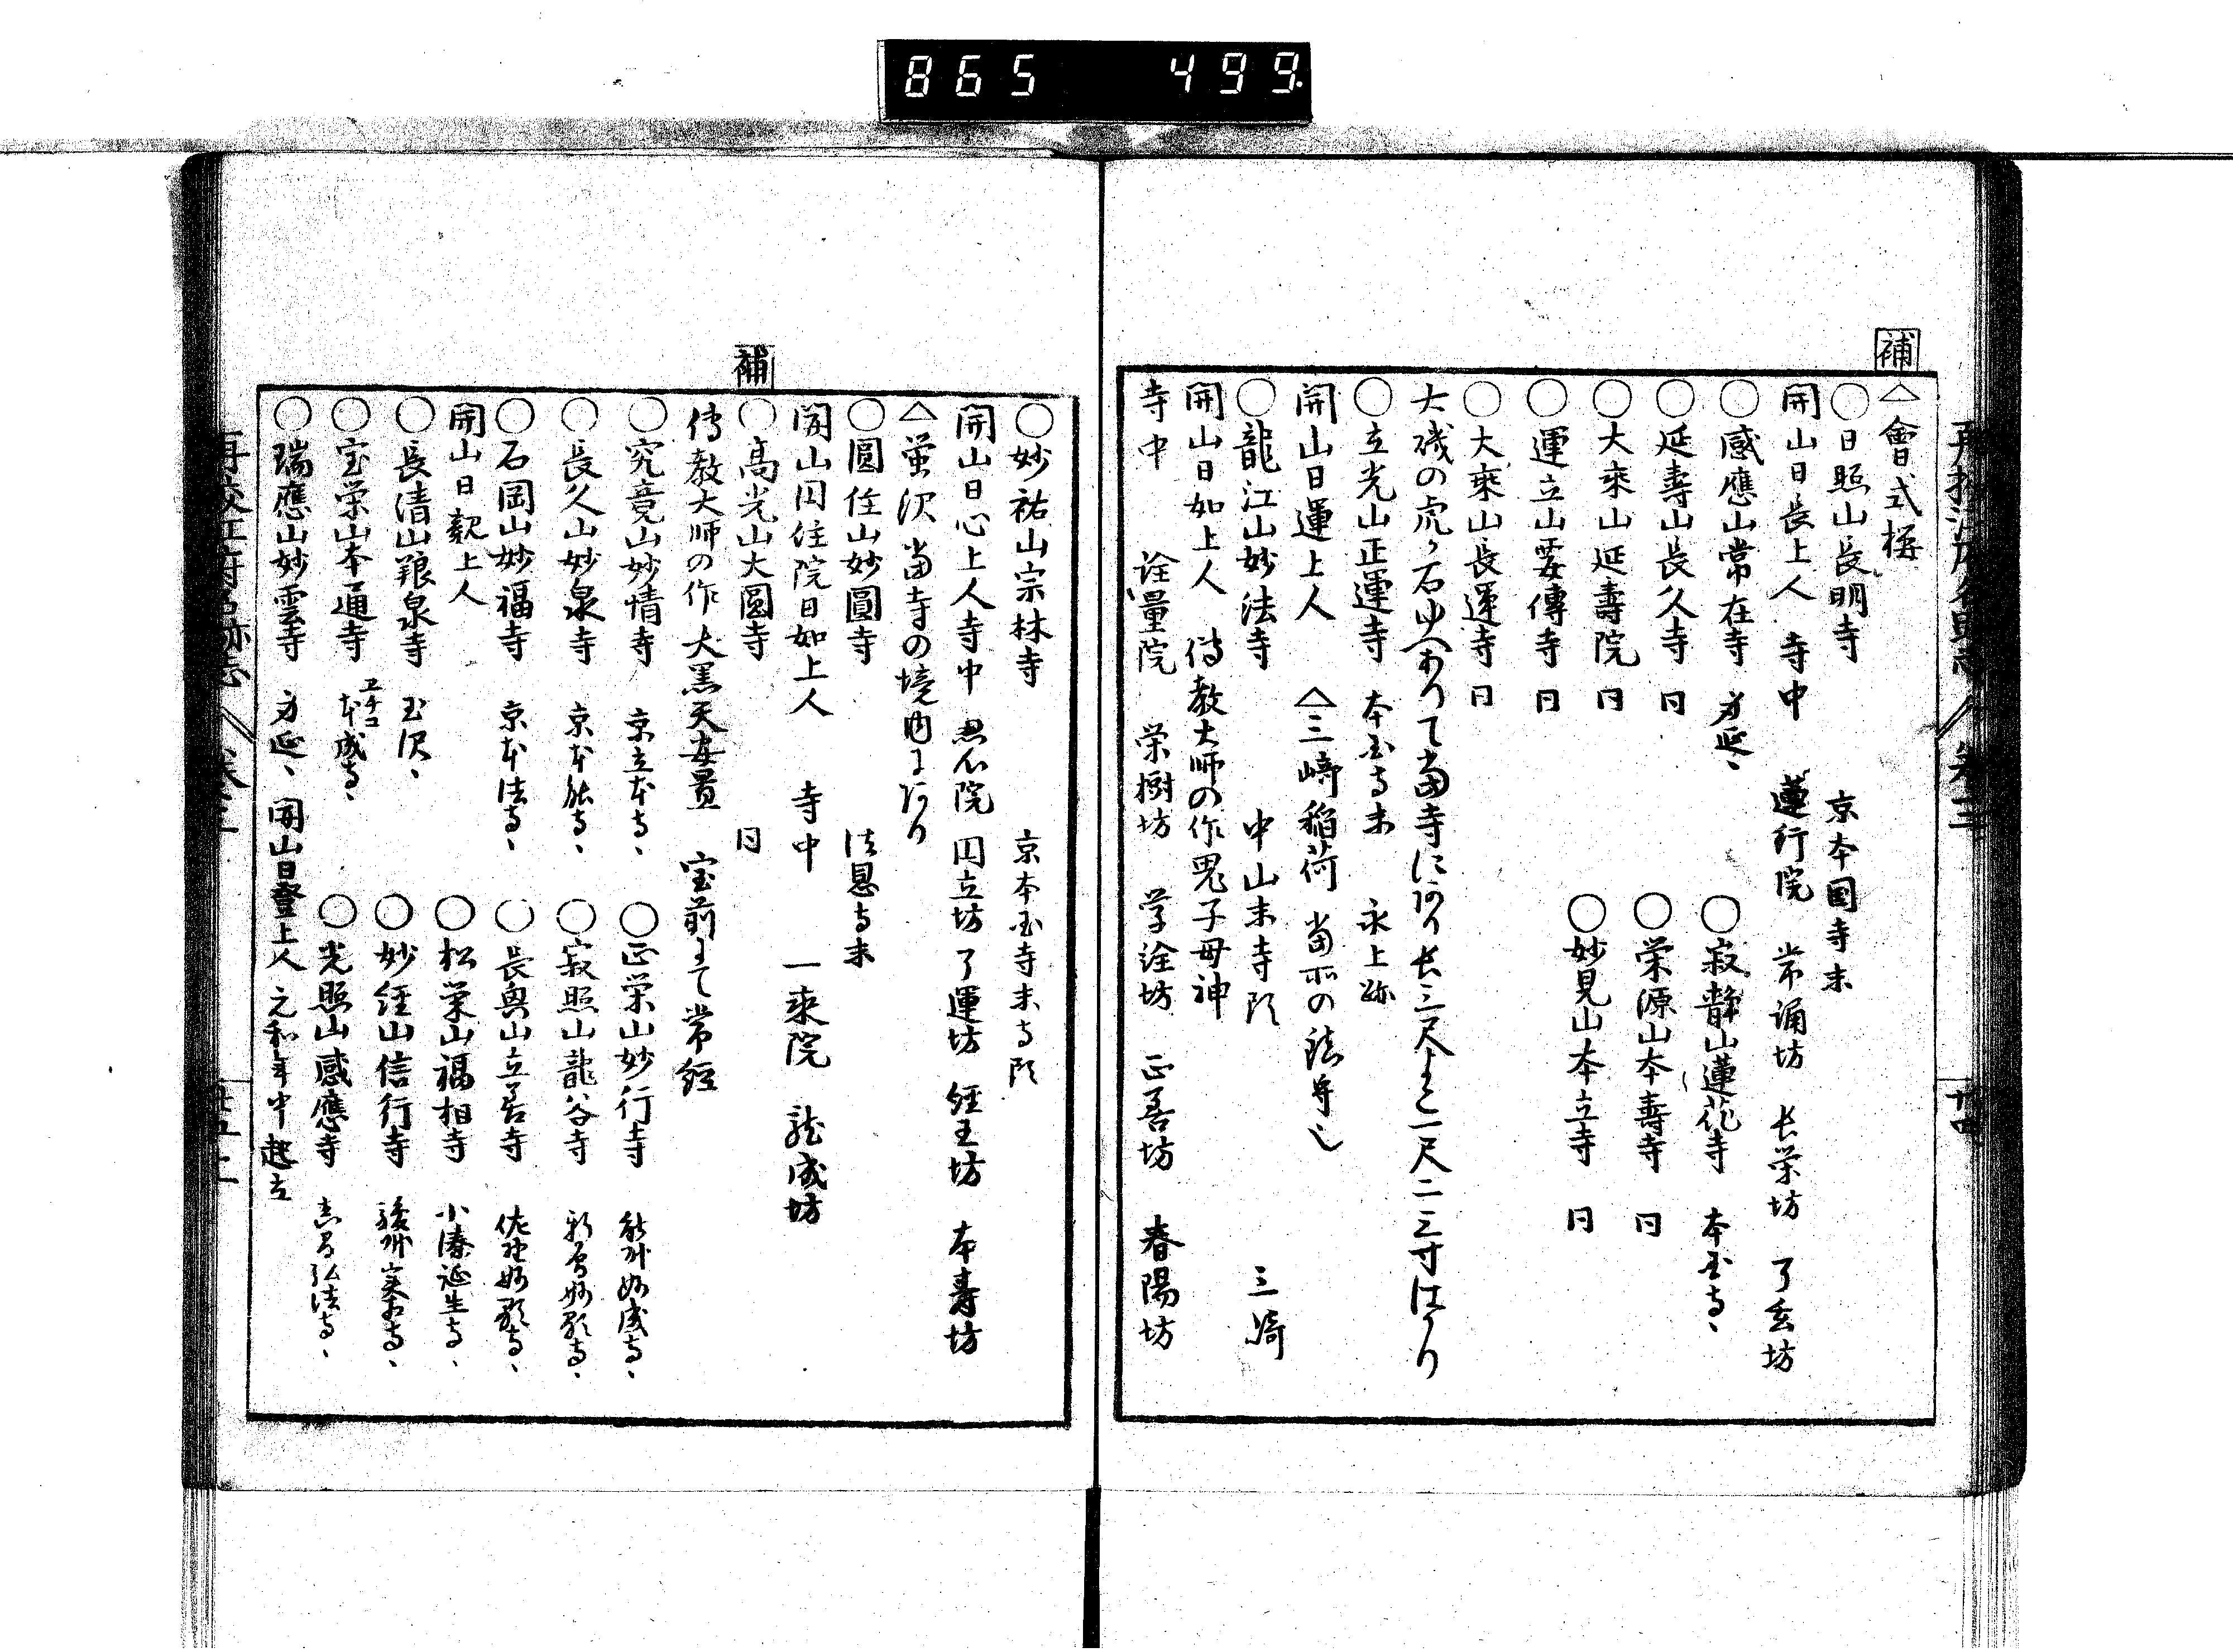 865 499
補
△會式桜
○日照山長明寺 京本国寺末
開山日長上人 寺中 蓮行院 常誦坊 長栄坊 了玄坊
○感應山常在寺 身延、 ○寂静山蓮花寺 本国寺、
○延壽山長久寺 同 ○栄源山本壽寺 同
○大乗山延壽院 同 ○妙見山本立寺 同
○運立山要傳寺 同
○大乗山長運寺 同
大磯の虎か石ゆへありて當寺にあり長三尺よこ一尺二三寸はかり
○立光山正運寺 本国寺末 永上跡
開山日運上人 △三崎稲荷 當所の鎮守也
○龍江山妙法寺 中山末寺順 三崎
開山日如上人 傳教大師の作鬼子母神
寺中 詮量院 栄樹坊 学詮坊 正善坊 春陽坊
○妙祐山宗林寺 京本国寺末寺順
開山日心上人寺中 是心院 円立坊 了運坊 経王坊 本寿坊
△蛍沢 當寺の境内にあり
○圓住山妙圓寺 法恩寺末
開山円住院日如上人 寺中 一乗院 龍成坊
補
○高光山大圓寺 同
傳教大師の作大黒天安置 宝前にて常経
○究竟山妙情寺 京立本寺、 ○正栄山妙行寺 能州妙成寺、
○長久山妙泉寺 京本能寺、 ○寂照山龍谷寺 妙顕寺、
○石岡山妙福寺 京本法寺、 ○長興山立善寺 佐野妙顕寺、
開山日親上人 ○松栄山福相寺 小湊誕生寺、
○長清山粮泉寺 玉沢、 ○妙経山信行寺 駿州実相寺、
○宝栄山本通寺 本成寺、 ○光照山感應寺 真間弘法寺、
○瑞應山妙雲寺 身延、 開山日登上人 元和年中起立